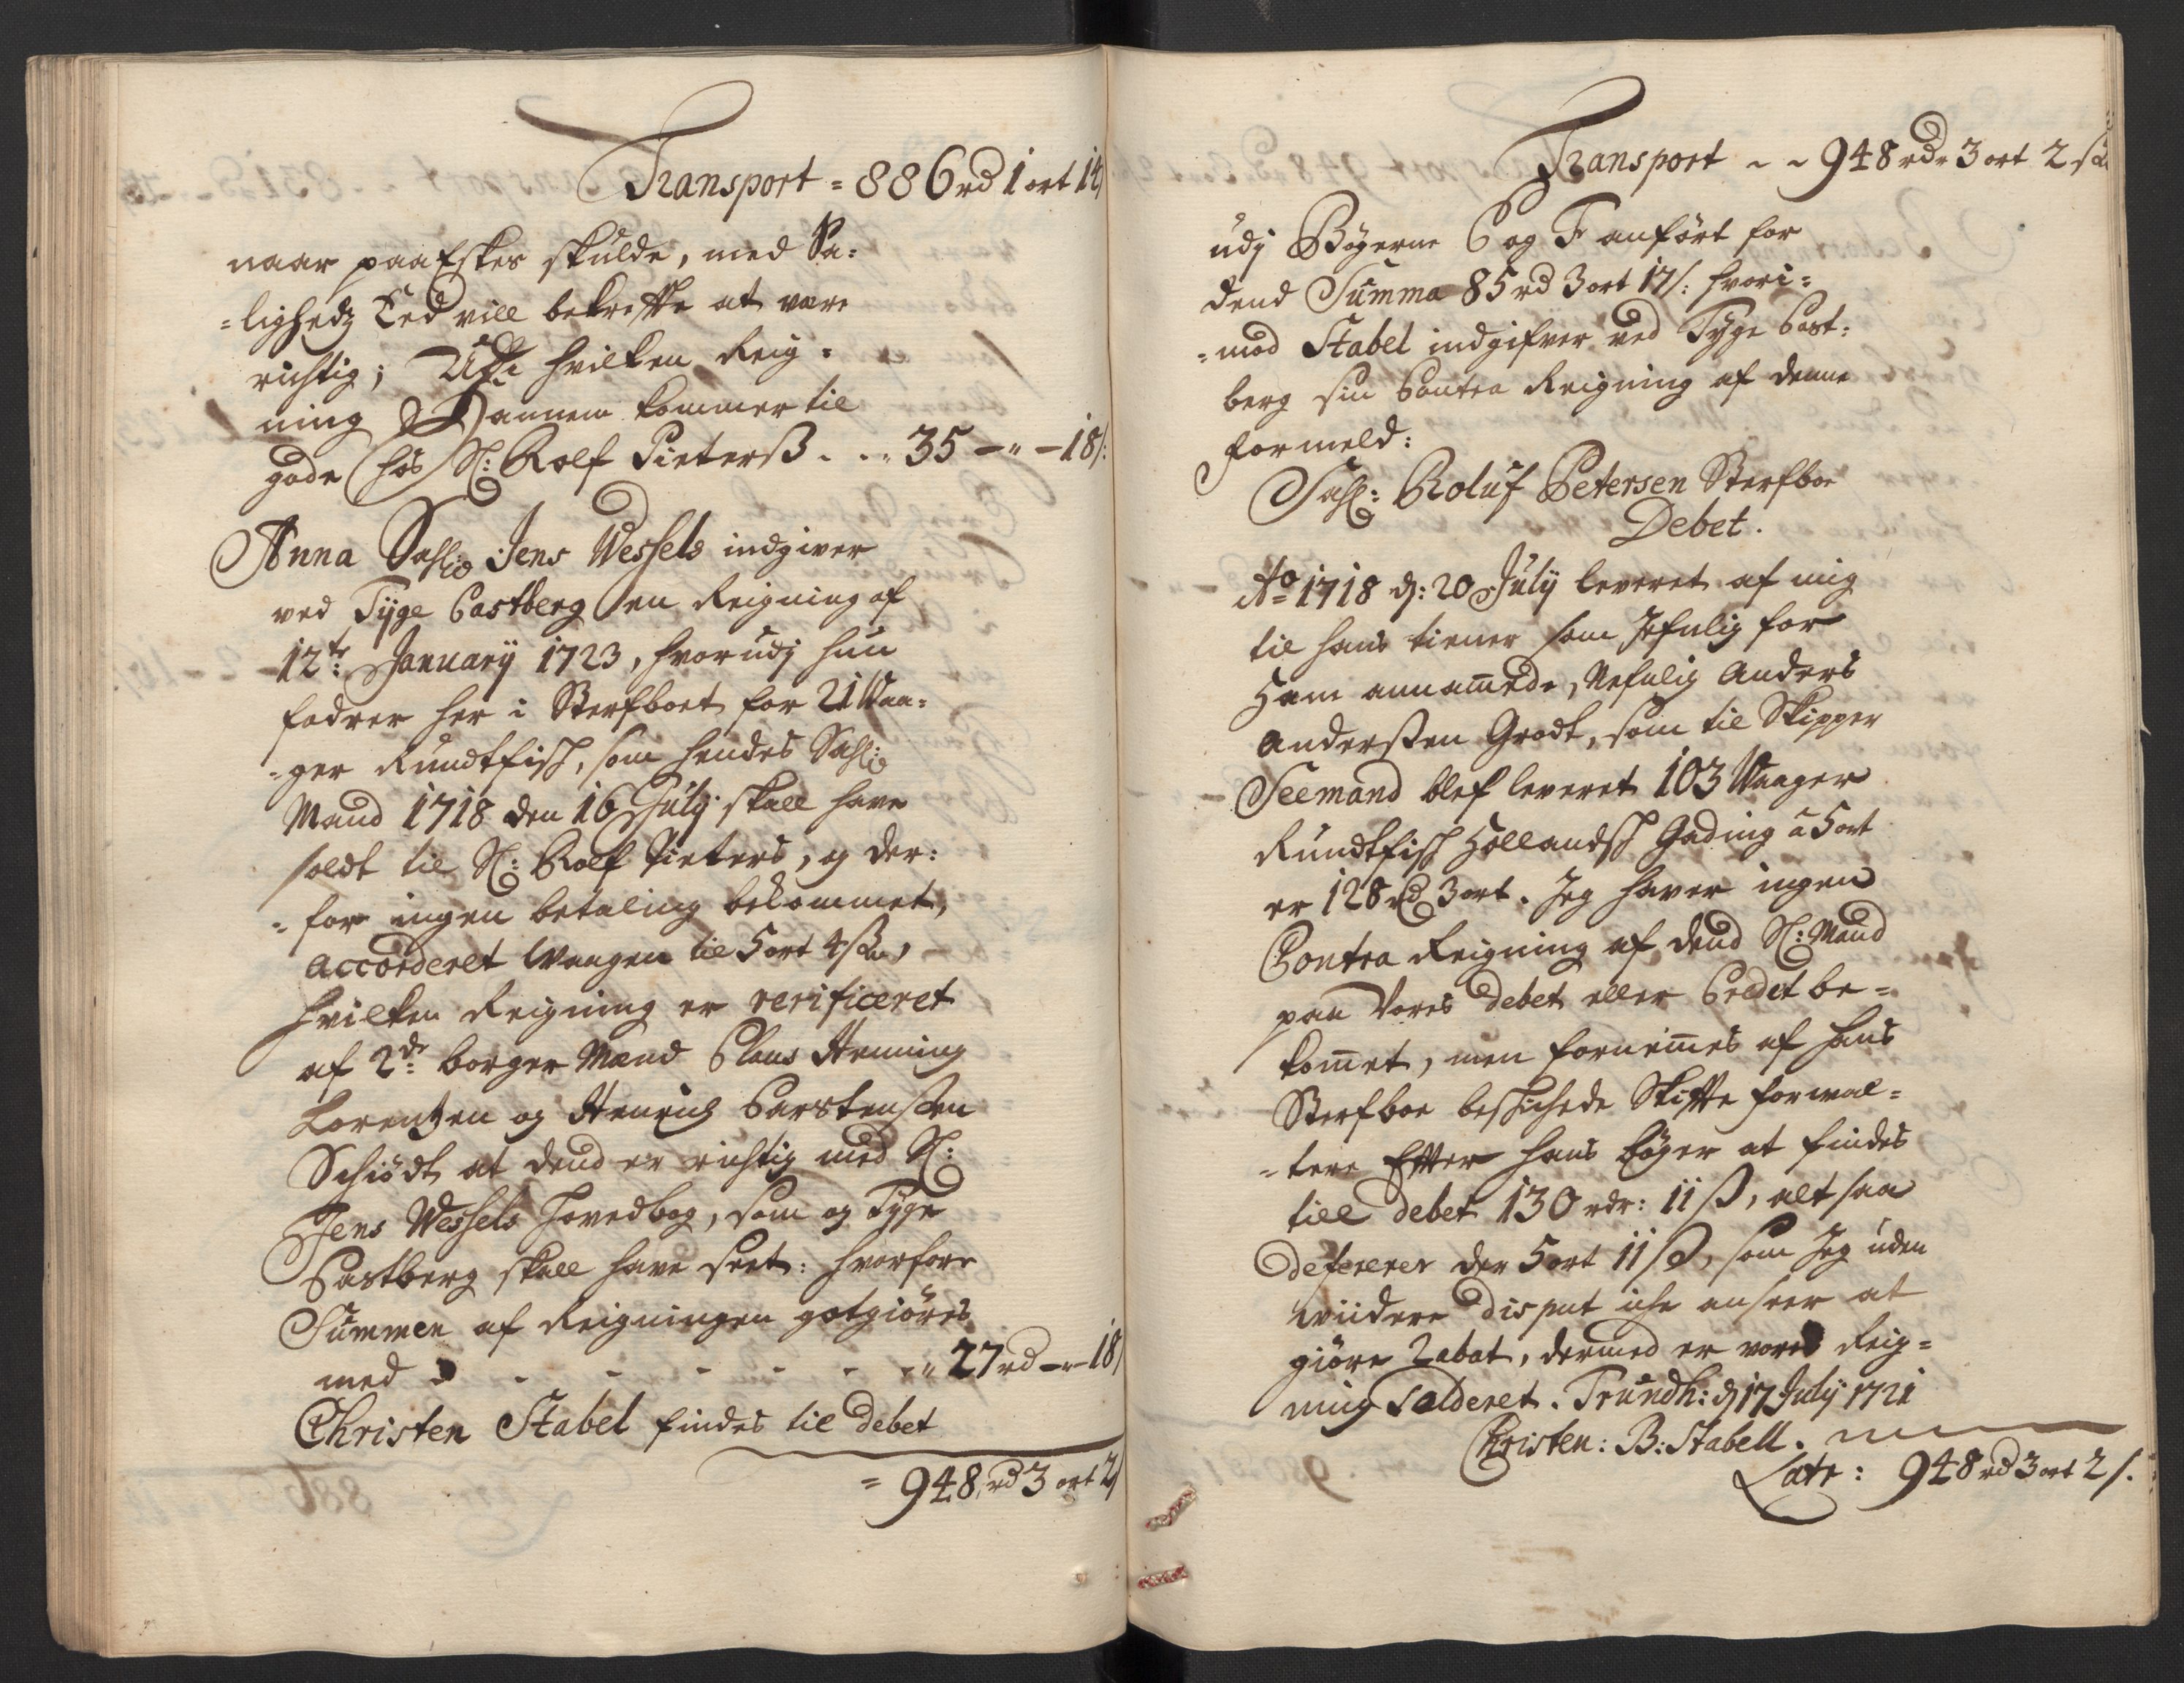 Transport = 886 rd 1 ort 14
naar paa Eskes skulde, med Sa-
=lighedz Eed vill bekrefte at være
richtig; Udi hvilken Reig=
ning Hannem kommer til
gode hos Sl: Rolf Pieterß . . . 35 – " – 18/:
Anna Sahl: Jens Wessels indgiver
ved Tyge Castberg en Reigning af
12te: January 1723, hvorudj hun
fodrer her i Sterfboet for 21 Waa=
=ger Rundtfisch, som hendes Sahl:
Mand 1718 den 16 July skall have
soldt til Sl: Rolf Pieters, og der:
=for ingen betaling bekommet,
accorderet Waagen til 5 ort 4 sk,
hvilken Reigning er verificeret
af 2de: borger Mænd Claus Henning
Lorentzen og Henrich Carstensen
Schiødt at dend er richtig med Sl:
Jens Wessels Hovedbog, som og Tyge
Castberg skall have seet: hvorfore
Summen af Reigningen gotgiøres
med - - - - - - " 27 rd – " – 18/
Christen Stabel findes til debet
= 948 rd 3 ort 2/
Transport ~ ~ 948 rdr 3 ort 2 sk
udj Bøgerne C og F anført for
dend Summa 85 rd 3 ort 17/: hvori=
=mod Stabel indgifver ved Tyge Cast:
berg sin Contra Reigning af denne
formeld:
Sahl: Roluf Petersen Sterfboe
Debet.
Ao 1718 d: 20 July leveret af mig
til hans tiener som Jefnlig for
Ham annammede, Nefnlig Anders
Anderssen Grodt, som til Skipper
Seemand blef leveret 103 Waager
Rundtfisch Hollandsch Gading a 5 ort
er 128 rd 3 ort. Jeg haver ingen
Contra Reigning af dend Sl: Mand
paa Vores debet eller Credit be=
kommet, men fornemmes af hans
Sterfboe beschichede Skifte forwal=
=tere Efter hans bøger at findes
till debet 130 rdr: 11 ß, alt saa
Defererer der 5 ort 11 ß, som Jeg uden
widere disput iche anseer at
giøre Rabat, dermed er vores Reig=
ning Salderet. Trundh: d 17 July 1721
Christen: B: Stabell.
Latr: 948 rd 3 ort 2/.